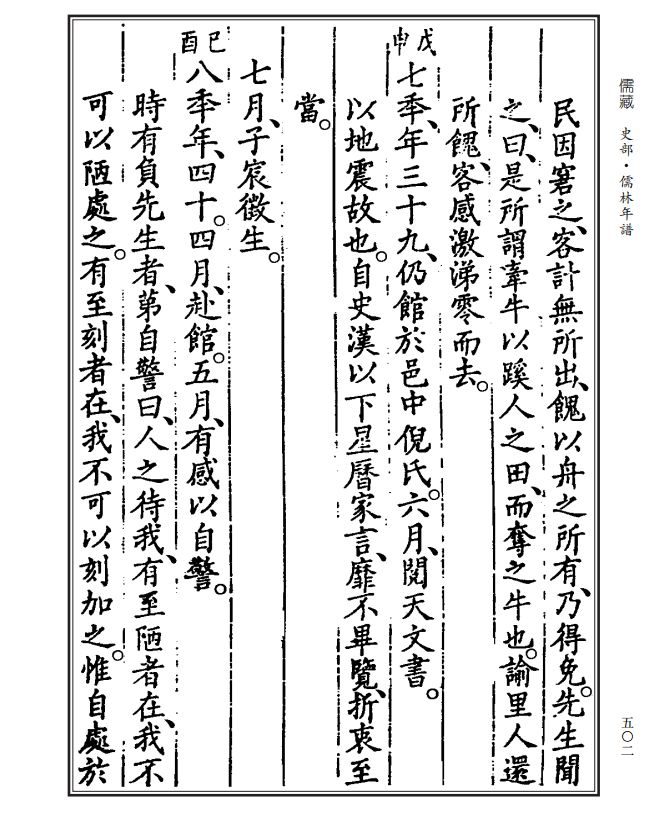 儒藏 史部·儒林年譜
民因窘之、客計無所出、餽以舟之所有、乃得免。先生聞
之、曰、是所謂牽牛以蹊人之田、而奪之牛也。諭里人還
所餽、客感激涕零而去。
戊申 七季、年三十九、仍館於邑中倪氏。六月、閱天文書。
以地震故也。自史漢以下星曆家言、靡不畢覽、折衷至
當。
七月、子宸徵生。
己酉 八季年、四十。四月、赴館。五月、有感以自警。
時有負先生者、苐自警曰、人之待我、有至陋者在、我不
可以陋處之。有至刻者在、我不可以刻加之。惟自處於
五〇二